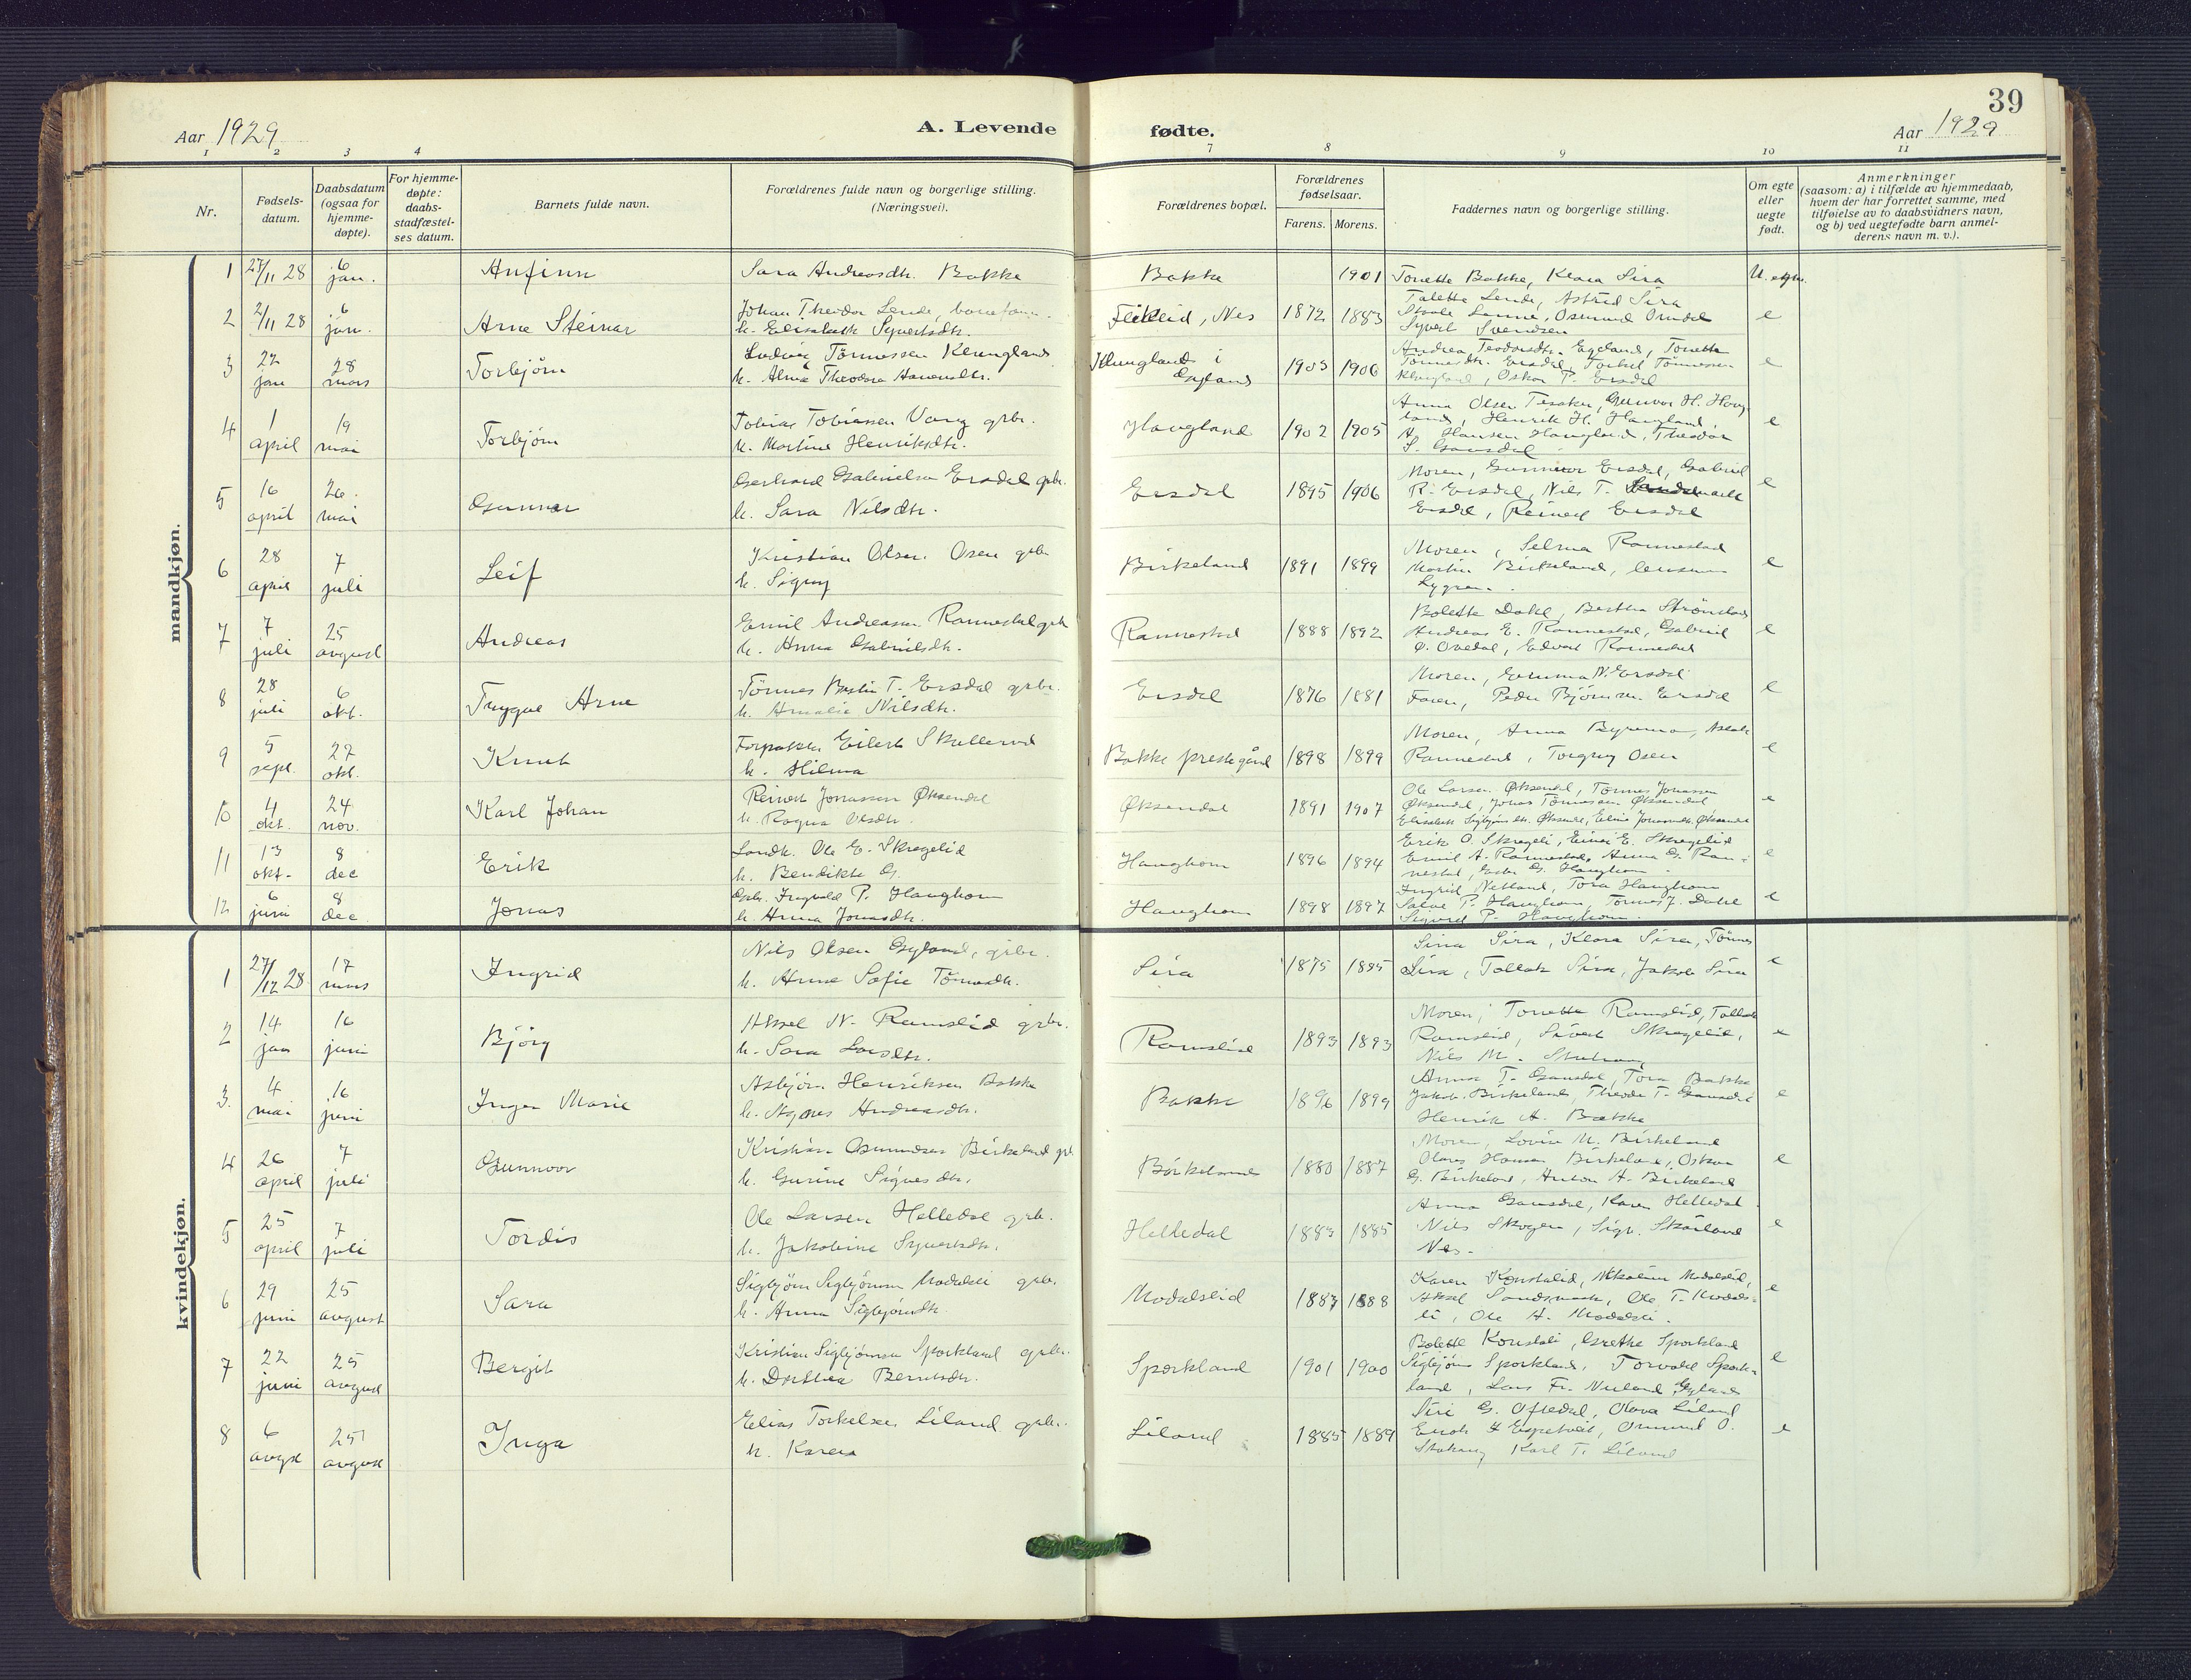 39
Aar 1929
A. Levende
fødte.
Aar 1929
1 2 3 4 7 8 9 10 11
Nr.
Fødsels-
datum.
Daabsdatum
(ogsaa for
hjemme-
døpte).
For hjemme-
døpte:
daabs-
stadfæstel-
ses datum.
Barnets fulde navn.
Forældrenes fulde navn og borgerlige stilling.
(Næringsvei).
Forældrenes bopæl.
Forældrenes
fødselsaar.
Farens. Morens.
Faddernes navn og borgerlige stilling.
Om egte
eller
uegte
født.
Anmerkninger
(saasom: a) i tilfælde av hjemmedaab,
hvem der har forrettet samme, med
tilføielse av to daabsvidners navn,
og b) ved uegtefødte barn anmel-
derens navn m. v.).
mandkjøn.
1 27/11 28 6 jan. Anfinn Sara Andreasdtr. Bakke Bakke 1901 Tonette Bakke, Klara Sira U.
2 2/11 28 6 jan. Arne Steinar Johan Theodor Lende,
h. Elisabeth Syvertsdtr. Nes 1872 1883 e
Talette Lende, Astrid Sira
Osmund
Syvert Svendsen
3 22 jan 28 mars Torbjørn Ludvig Tönnessen
h. Alma Theodora
i
1903 1906 e
Andrea Teodorsdtr. Egeland, Tonette
Ersdal, Torkel Tönnessen
Oskar P. Ersdal
4 1 april 19 mai Torbjørn Tobias Tobiassen Vang grbr.
h. Martine Henriksdtr. Haugland 1902 1905 e
Anna Olsen Gunvor H. Haug-
land, Henrik H. Haugland,
Hansen Haugland, Theodor
S. Gausdal
5 16 april 26. mai Gunnar Gerhard Gabrielsen Ersdal grbr.
h. Sara Nilsdtr. Ersdal 1895 1906 e
Moren, Ersdal, Gabriel
R. Ersdal, Nils T.
Ersdal, Reinert Ersdal
6 28 april 7 juli Leif Kristian Olsen Osen grbr
h. Signy Birkeland 1891 1899 e
Moren, Selma Rannestad
Martin Birkeland, lensmann
Lygren.
7 7 juli 25 august Andreas Emil Andreassen Rannestad grbr
h. Anna Gabrielsdtr. Rannestad 1888 1892 e
Bolette Dahl, Bertha
Andreas E. Rannestad, Gabriel
O. Ovedal, Edvart Rannestad
8 28 juli 6 okt. Trygve Arne Tönnes T. Ersdal grbr.
h. Amalie Nilsdtr. Ersdal 1876 1881 e
Moren, Emma N. Ersdal
Faren, Peder Björnsen Ersdal
9 5 sept. 27 okt. Knut Forpakter Eilert
h. Hilma Bakke prestegård 1898 1899 e
Moren, Anna Aslak
Rannestad, Torgny Osen
10 4 okt. 24 nov. Karl Johan Reinert Jonassen Øksendal
h. Ragna Olsdtr. Øksendal 1891 1907 e
Ole Larsen Øksendal, Tönnes Jonassen
Øksendal, Jonas Tönnessen Øksendal,
Elisabeth Sigbjørnsdtr. Øksendal, Øksendal
11 13 okt. 8 dec Erik Landh. Ole E. Skregelid
h. Bendikte G. Haughom 1896 1894 e
Erik O. E. Skregelid
Emil A. Rannestad, Anna G. Ran-
nestad, G. Haughom
12 6 juni 8 dec. Jonas Grbr. Ingvald P. Haughom
h. Anna Jonasdtr. Haughom 1898 1897 e
Ingrid Netland, Tora Haughom
Salve P. Haughom, Tönnes J. Dahl
Sigurd P. Haughom.
kvindekjøn.
1 27/12 28 17 mars Ingrid Nils Olsen Gyland, grbr.
h. Anne Sofie Tönnesdtr. Sira 1875 1885 e
Sina Sira, Klara Sira, Tönnes
Sira, Tollak Sira, Jakob Sira
2 14 jan 16 juni Bjørg Aksel N. Ramslid grbr.
h. Sara Larsdtr. Ramslid 1893 1893 e
Moren, Tonette Ramslid, Tollak
Ramslid, Sivert Skregelid,
Nils M.
3. 4 mai 16 juni Inger Marie Asbjørn Henriksen Bakke
h. Agnes Andreasdtr. Bakke 1896 1899 e
Anna T. Gausdal, Tora Bakke
Jakob Birkeland, Theodor T. Gausdal
Henrik A. Bakke
4 26 april 7 juli Gunnvor Kristian Birkeland grbr
h. Gurine Birkeland 1880 1887 e
Moren, Lovise M. Birkeland
Hansen Birkeland, Oskar
G. Birkeland, Anton A. Birkeland
5 25 april 7 juli Tordis Ole Larsen Helledal grbr.
h. Jakobine Syvertsdtr. Helledal 1883 1885 e
Anna Gausdal, Karen Helledal
Nils Skogen, Sigv. Skåland
Nes.
6 29 juni 25 august Sara Sigbjørn Sigbjørnsen grbr.
h. Anna Sigbjørnsdtr. Modalslid 1887 1888 e
Karen Konstalid, Nikoline Modalslid,
Aksel Sandsmark, Ole T. Modals-
li, Ole H.
7 22 juni 25 august Bergit Kristian Sigbjørnsen Sporkland grbr.
h. Dorthea Berntsdtr. Sporkland 1901 1900 e
Bolette Konstali, Grethe Sporkland
Sigbjørn Sporkland, Torvald Spork-
land, Lars Fr. Nuland, Gyland
8 6 augst 25 august Inga Elias Torkelsen Liland grbr.
h. Karen Liland 1885 1889 e
Siri G. Oftedal, Olava Liland
Enok Espetveit, Osmund O.
Stakang Karl T. Liland